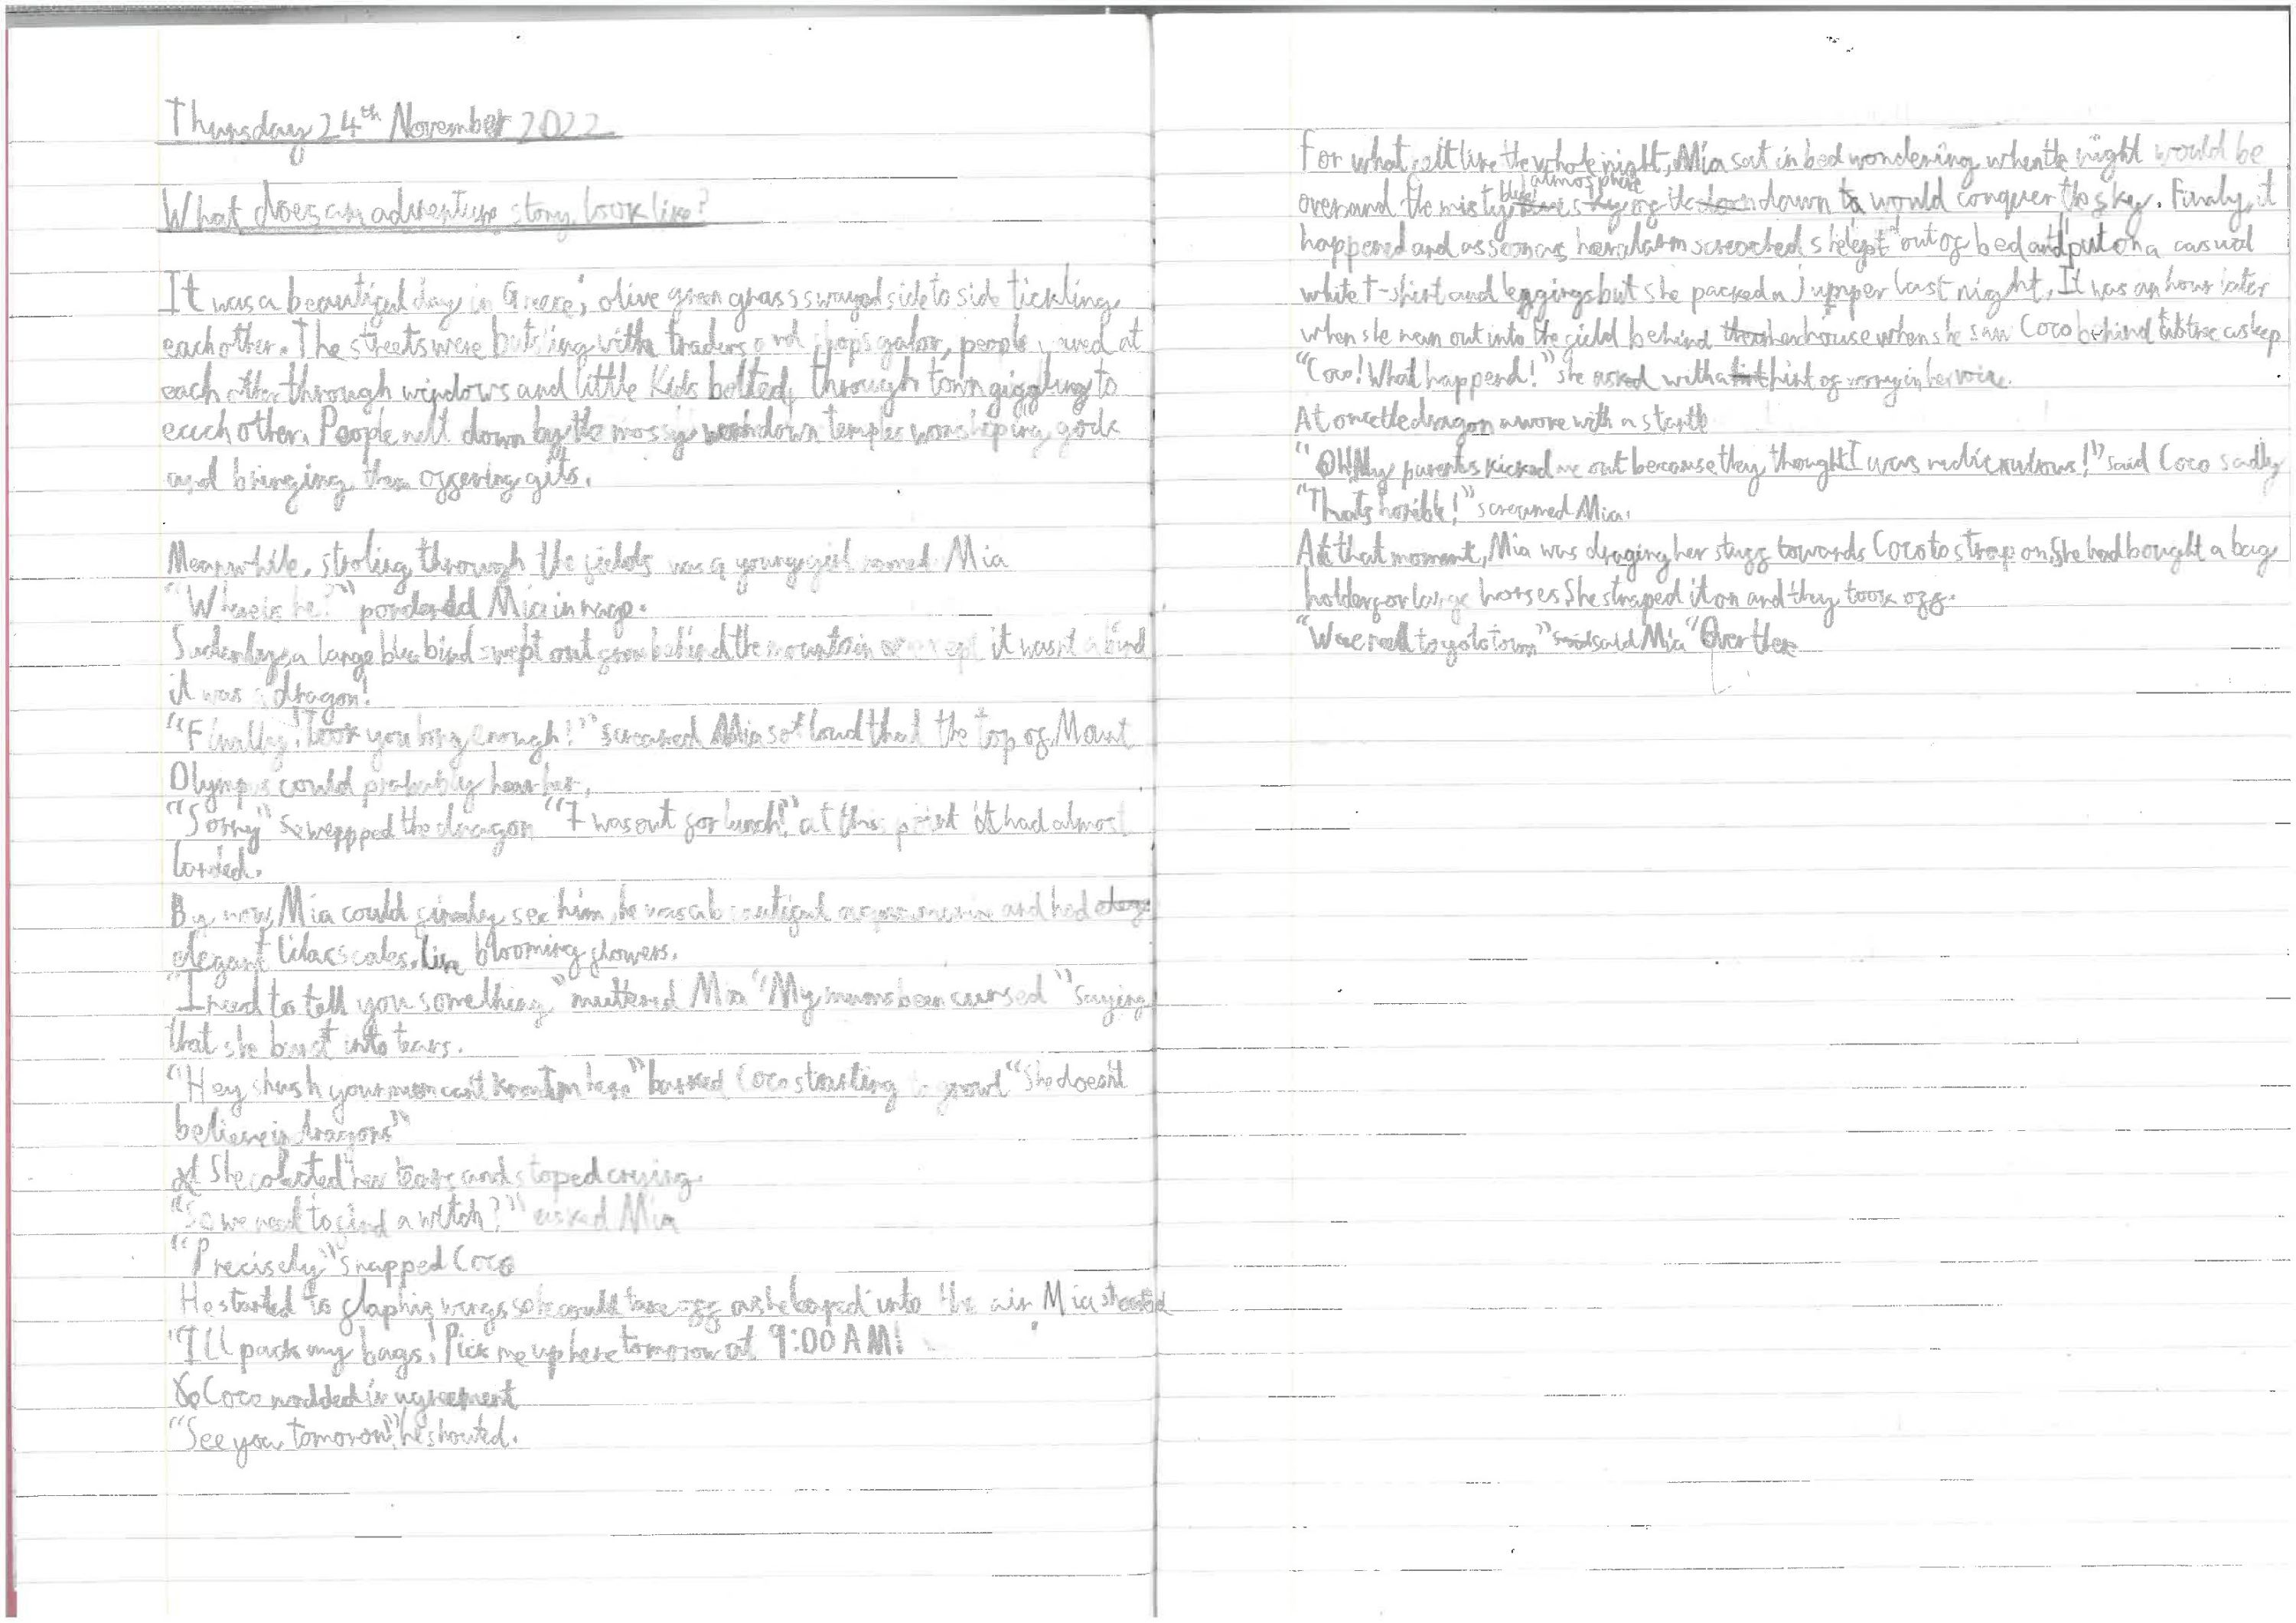 Thursday 24th November 2022
What does an adventure story look like?
It was a beautiful day in Greece; olive green grass swayed side to side tickling
each other. The streets were bustling with traders and shops galor, people at
each other through windows and little kids bolted through town giggling to
each other. People nelt down by the mossy worn down temples worshiping gods
and bringing them offering gifts.
Meanwhile, stroling through the fields was a young girl named Mia
"Where is he?" ponderd Mia in rage.
Sudenley, a large blue bird swept out from behind the mountain except it wasnt a bird
it was a dragon!
"Finally! Took you long enough!" screamed Mia so loud that the top of Mount
Olympus could probably hear her.
"Sorry" the dragon "I was out for lunch!" at this point it had almost
landed.
By now, Mia could finaly see him, he was a beautiful and had
elegant lilac scales, like blooming flowers.
"I need to tell you something" muttered Mia "My mums been cursed" saying
that she burst into tears.
"Hey shush your mum cant know Im here" barked Coco starting to growl "She doesnt
believe in dragons"
She colected her tears and stoped crying.
"So we need to find a witch?" asked Mia
"Precisely" snapped Coco
He started to flap his wings so he could take off as he leaped into the air Mia shouted
"I'll pack my bags! Pick me up here tomorow at 9:00 AM!
Coco nodded in agreement
"See you tomorow" he shouted.
For what felt like the whole night, Mia sat in bed wondering when the night would be
over and the misty blue atmosphere of the dawn would conquer the sky. Finaly, it
happened and as soon as her alarm screeched she lept out of bed and put on a casual
white T-shirt and leggings but she packed a jupper last night. It was an hour later
when she run out into the field behind her house when she saw Coco behind a tree asleep
"Coco! What happend!" she asked with a hint of worry in her voice.
At once the dragon awoke with a startle
"Oh! My parents kicked me out because they thought I was rediculous!" said Coco sadly
"Thats horible!" screamed Mia.
At that moment, Mia was draging her stuff towards Coco to strap on. She had bought a bag
holder for large horses. She straped it on and they took off.
"We need to go to town" said Mia "Over there